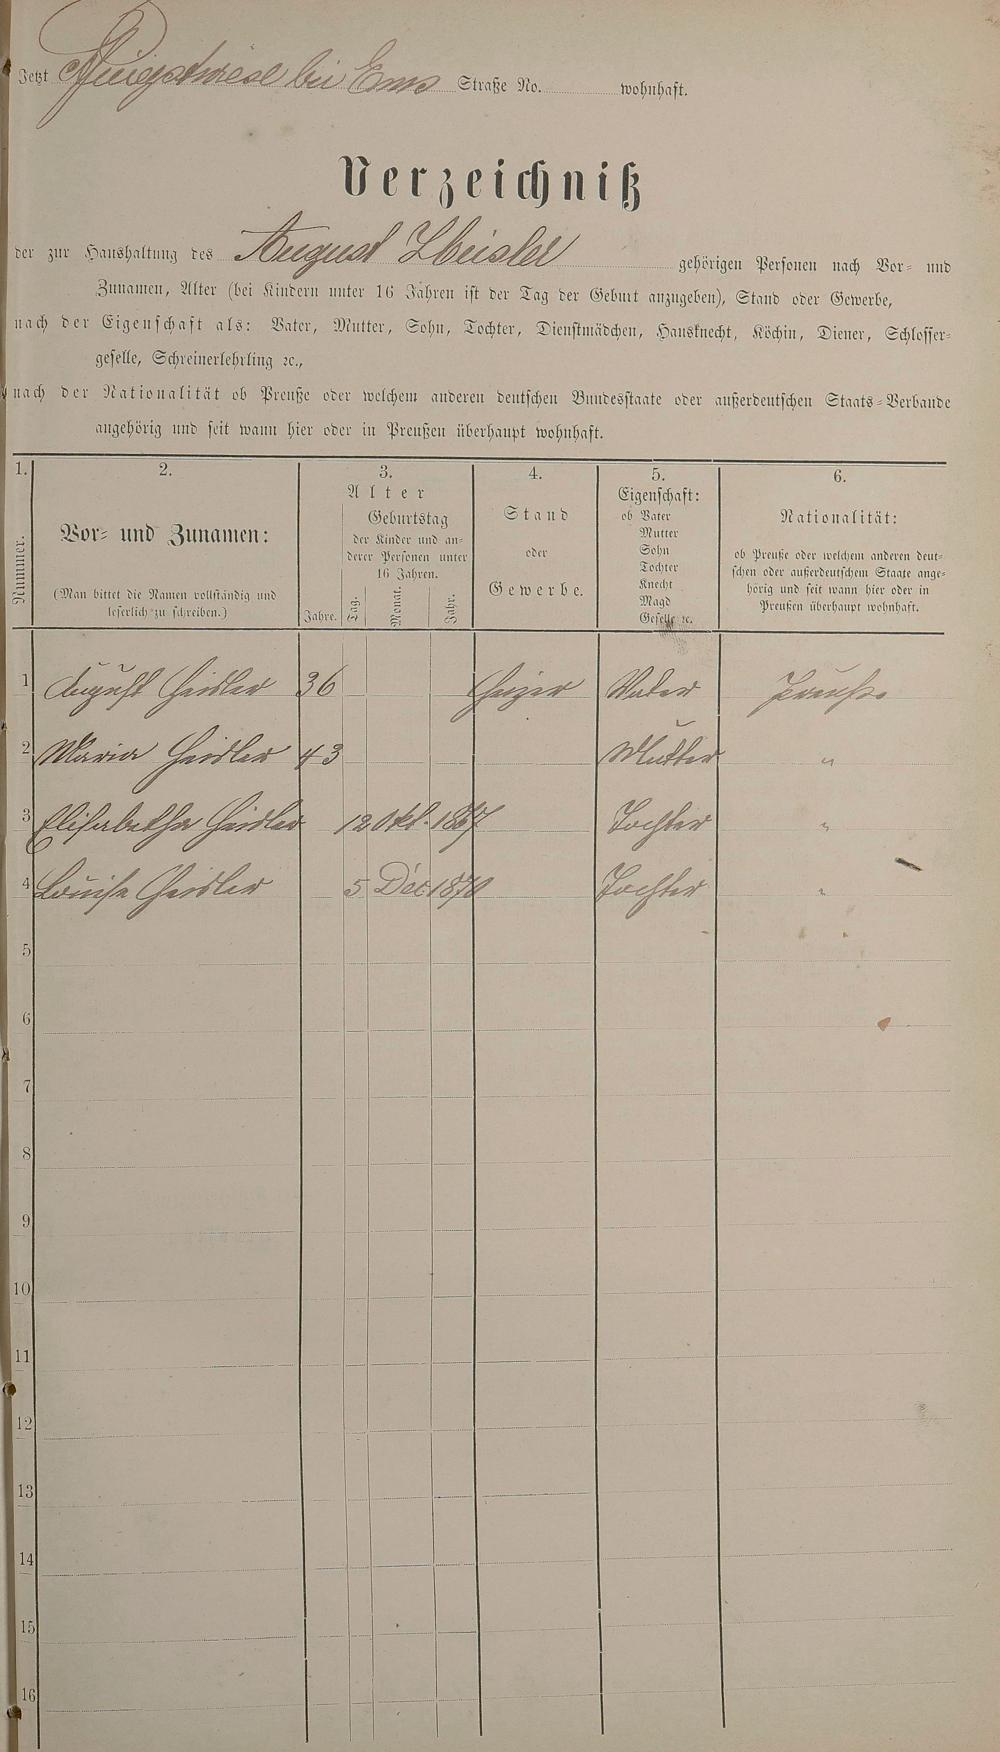 Jetzt Pfingstwiese bei Ems Straße No. wohnhaft.
Verzeichniß
der zur Haushaltung des August Heisler gehörigen Personen nach Vor- und
Zunamen, Alter (bei Kindern unter 16 Jahren ist der Tag der Geburt anzugeben), Stand oder Gewerbe,
nach der Eigenschaft als: Vater, Mutter, Sohn, Tochter, Dienstmädchen, Hausknecht, Köchin, Diener, Schlosser-
geselle, Schreinerlehrling ꝛc.,
nach der Nationalität ob Preuße oder welchem anderen deutschen Bundesstaate oder außerdeutschen Staats-Verbande
angehörig und seit wann hier oder in Preußen überhaupt wohnhaft.
1. 2. 3. 4. 5. 6.
Nummer.
Vor- und Zunamen:
(Man bittet die Namen vollständig und
leserlich zu schreiben.)
Alter
Jahre.
Geburtstag
der Kinder und an-
derer Personen unter
16 Jahren.
Tag. Monat. Jahr.
Stand
oder
Gewerbe.
Eigenschaft:
ob Vater
Mutter
Sohn
Tochter
Knecht
Magd
Geselle ꝛc.
Nationalität:
ob Preuße oder welchem anderen deut-
schen oder außerdeutschem Staate ange-
hörig und seit wann hier oder in
Preußen überhaupt wohnhaft.
1 August Heisler 36 Heizer Vater Preuße
2 Maria Heisler 43 Mutter "
3 Elisabetha Heisler 12 Okt. 1867 Tochter "
4 Louise Heisler 5 Dec 1870 Tochter "
5
6
7
8
9
10
11
12
13
14
15
16